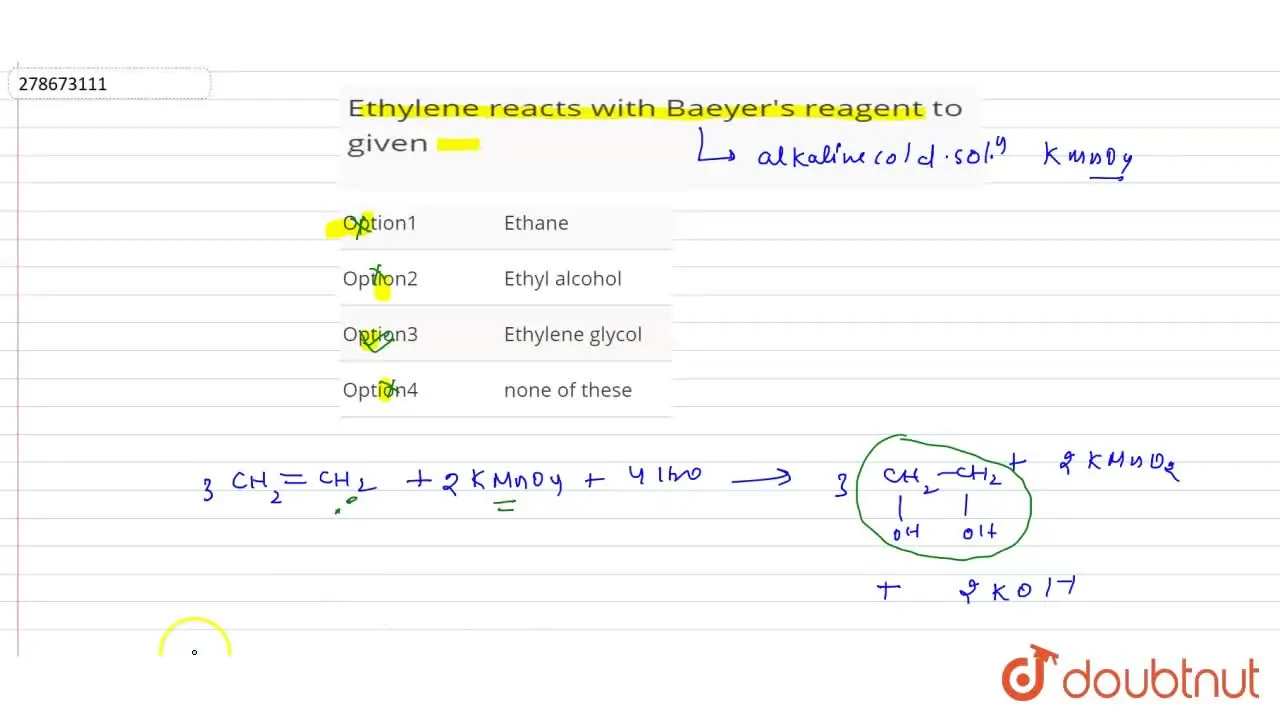 278673111
Ethylene reacts with Baeyer's reagent to
given
alkaline cold. solⁿ KMnO4
Option1 Ethane
Option2 Ethyl alcohol
Option3 Ethylene glycol
Option4 none of these
3 CH2 = CH2 + 2 KMnO4 + 4 H2O → 3 CH2 - CH2 + 2 KMnO2
OH OH
+ 2 KOH
doubtnut